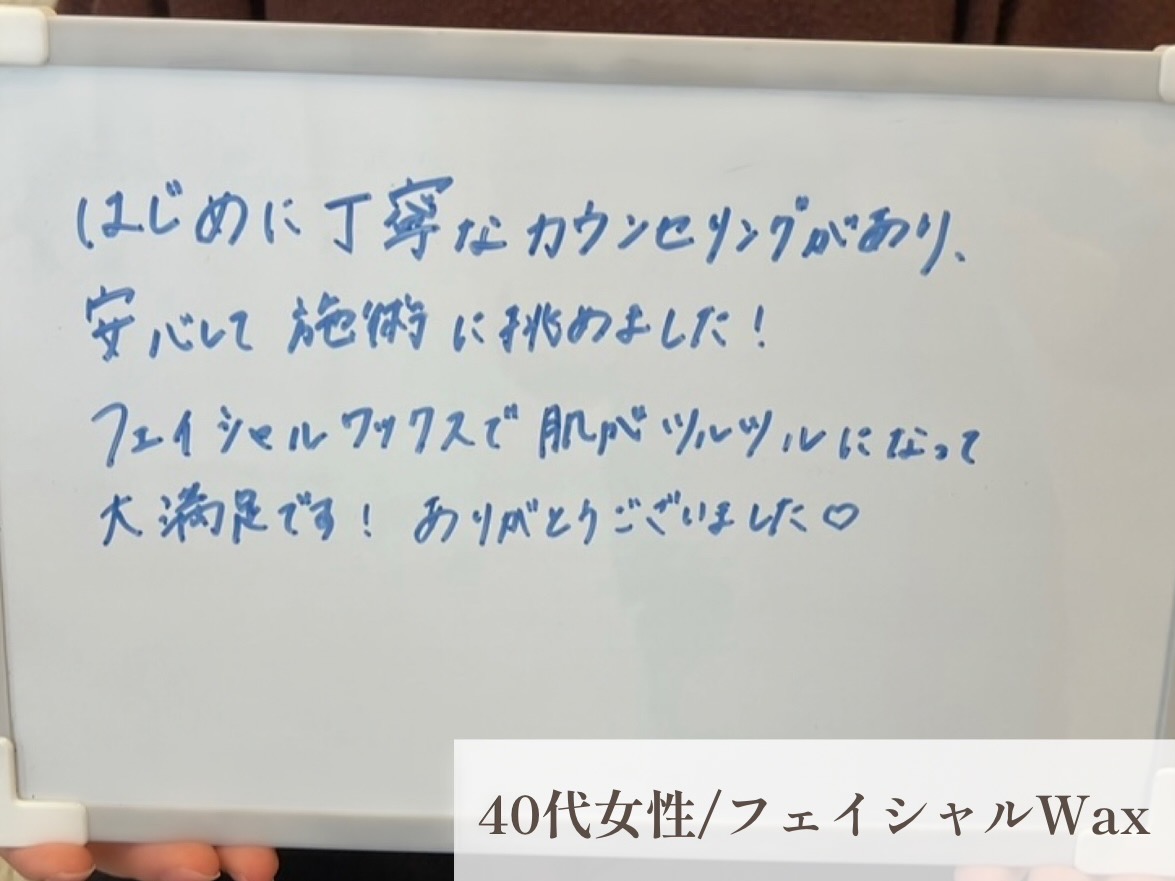 はじめに丁寧なカウンセリングがあり、
安心して施術に挑めました！
フェイシャルワックスで肌がツルツルになって
大満足です！ありがとうございました♡
40代女性/フェイシャルWax